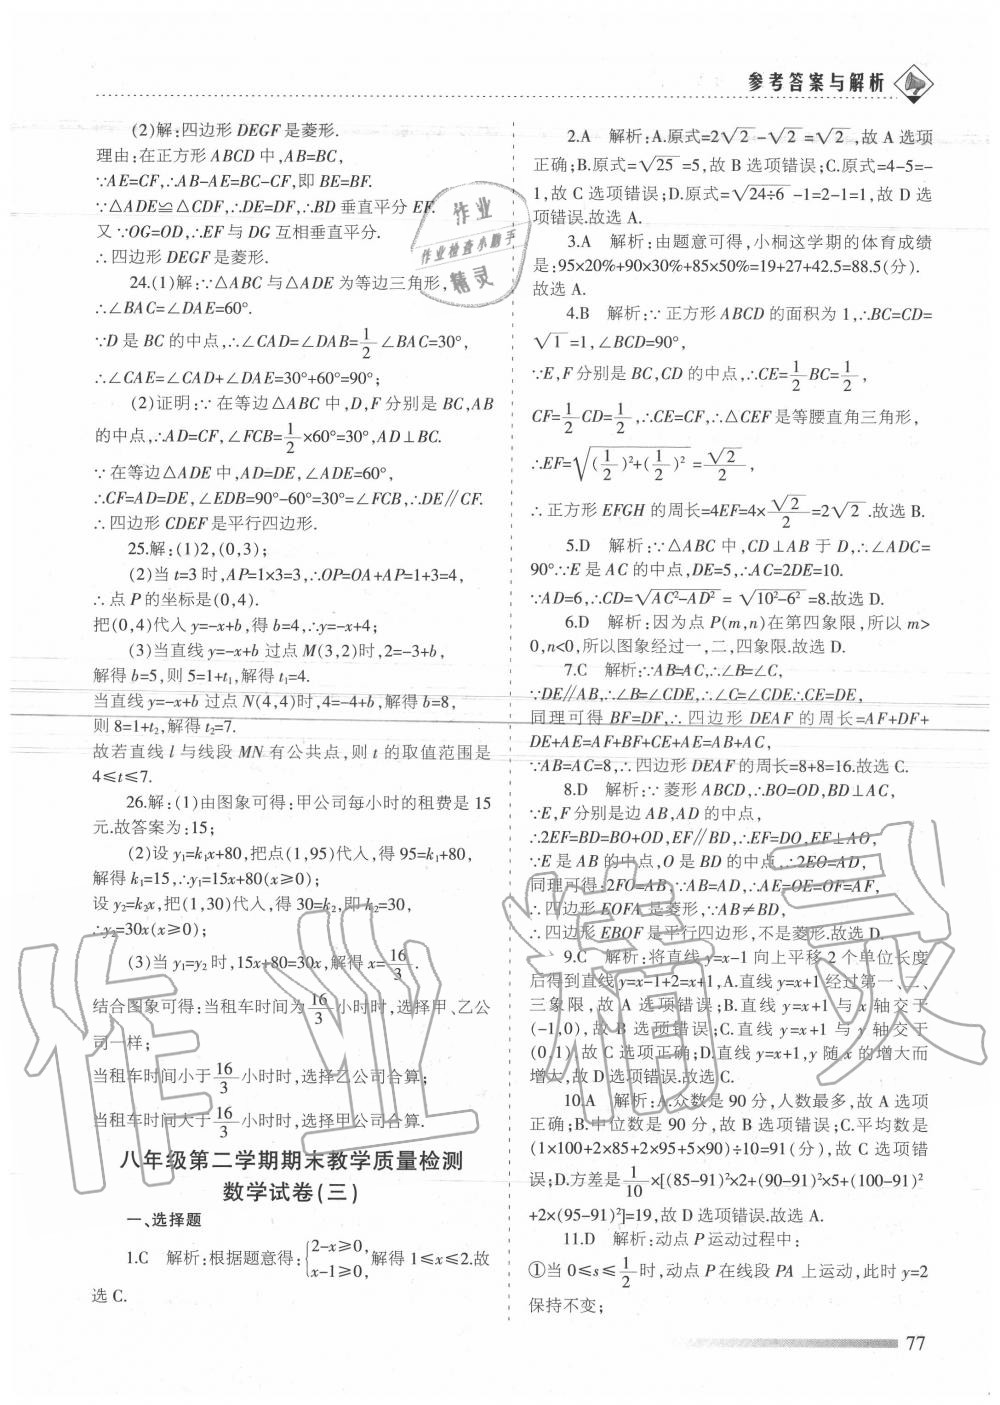 参考答案与解析
(2)解:四边形 DEGF 是菱形.
理由:在正方形 ABCD 中,AB=BC,
∵AE=CF,∴AB-AE=BC-CF,即 BE=BF.
∵△ADE≌△CDF,∴DE=DF,∴BD 垂直平分 EF.
又∵OG=OD,∴EF 与 DG 互相垂直平分.
∴四边形 DEGF 是菱形.
24.(1)解:∵△ABC 与△ADE 为等边三角形,
∴∠BAC=∠DAE=60°.
∵D 是 BC 的中点,∴∠CAD=∠DAB=1/2∠BAC=30°,
∴∠CAE=∠CAD+∠DAE=30°+60°=90°;
(2)证明:∵在等边△ABC 中,D,F 分别是 BC,AB
的中点,∴AD=CF,∠FCB=1/2×60°=30°,AD⊥BC.
∵在等边△ADE 中,AD=DE,∠ADE=60°,
∴CF=AD=DE,∠EDB=90°-60°=30°=∠FCB,∴DE∥CF.
∴四边形 CDEF 是平行四边形.
25.解:(1)2,(0,3);
(2)当 t=3 时,AP=1×3=3,∴OP=OA+AP=1+3=4,
∴点 P 的坐标是(0,4).
把(0,4)代人 y=-x+b,得 b=4,∴y=-x+4;
(3)当直线 y=-x+b 过点 M(3,2)时,2=-3+b,
解得 b=5,则 5=1+t₁,解得 t₁=4.
当直线 y=-x+b 过点 N(4,4)时,4=-4+b,解得 b=8,
则 8=1+t₂,解得 t₂=7.
故若直线 l 与线段 MN 有公共点,则 t 的取值范围是
4≤t≤7.
26.解:(1)由图象可得:甲公司每小时的租费是 15
元.故答案为:15;
(2)设 y₁=k₁x+80,把点(1,95)代人,得 95=k₁+80,
解得 k₁=15,∴y₁=15x+80(x≥0);
设 y₂=k₂x,把(1,30)代人,得 30=k₂,即 k₂=30,
∴y₂=30x(x≥0);
(3)当 y₁=y₂ 时,15x+80=30x,解得 x=16/3.
结合图象可得:当租车时间为 16/3 小时时,选择甲、乙公
司一样;
当租车时间小于 16/3 小时时,选择乙公司合算;
当租车时间大于 16/3 小时时,选择甲公司合算.
八年级第二学期期末教学质量检测
数学试卷(三)
一、选择题
1.C 解析:根据题意得:{2-x≥0, x-1≥0, 解得 1≤x≤2.故
选 C.
2.A 解析:A.原式=2√2-√2=√2,故 A 选项
正确;B.原式=√25=5,故 B 选项错误;C.原式=4-5=-
1,故 C 选项错误;D.原式=√24÷6-1=2-1=1,故 D 选
项错误.故选 A.
3.A 解析:由题意可得,小桐这学期的体育成绩
是:95×20%+90×30%+85×50%=19+27+42.5=88.5(分).
故选 A.
4.B 解析:∵正方形 ABCD 的面积为 1,∴BC=CD=
√1=1,∠BCD=90°,
∵E,F 分别是 BC,CD 的中点,∴CE=1/2BC=1/2,
CF=1/2CD=1/2,∴CE=CF,∴△CEF 是等腰直角三角形,
∴EF=√((1/2)²+(1/2)²)=√2/2,
∴正方形 EFGH 的周长=4EF=4×√2/2=2√2.故选 B.
5.D 解析:∵△ABC 中,CD⊥AB 于 D,∴∠ADC=
90°∵E 是 AC 的中点,DE=5,∴AC=2DE=10.
∵AD=6,∴CD=√(AC²-AD²)=√(10²-6²)=8.故选 D.
6.D 解析:因为点 P(m,n)在第四象限,所以 m>
0,n<0,所以图象经过一,二,四象限.故选 D.
7.C 解析:∵AB=AC,∴∠B=∠C,
∵DE∥AB,∴∠B=∠CDE,∴∠C=∠CDE∴CE=DE,
同理可得 BF=DF,∴四边形 DEAF 的周长=AF+DF+
DE+AE=AF+BF+CE+AE=AB+AC,
∵AB=AC=8,∴四边形 DEAF 的周长=8+8=16.故选 C.
8.D 解析:∵菱形 ABCD,∴BO=OD,BD⊥AC,
∵E,F 分别是边 AB,AD 的中点,
∴2EF=BD=BO+OD,EF∥BD,∴EF=DO,EF⊥AO,
∵E 是 AB 的中点,O 是 BD 的中点,∴2EO=AD,
同理可得:2FO=AB,∵AB=AD,∴AE=OE=OF=AF,
∴四边形 EOFA 是菱形,∵AB≠BD,
∴四边形 EBOF 是平行四边形,不是菱形.故选 D.
9.C 解析:将直线 y=x-1 向上平移 2 个单位长度
后得到直线 y=x-1+2=x+1,A.直线 y=x+1 经过第一、二、
三象限,故 A 选项错误;B.直线 y=x+1 与 x 轴交于
(-1,0),故 B 选项错误;C.直线 y=x+1 与 y 轴交于
(0,1),故 C 选项正确;D.直线 y=x+1,y 随 x 的增大而
增大,故 D 选项错误.故选 C.
10.A 解析:A.众数是 90 分,人数最多,故 A 选项
正确;B.中位数是 90 分,故 B 选项错误;C.平均数是
(1×100+2×85+2×95+5×90)÷10=91(分),故 C 选项错
误;D.方差是 1/10×[(85-91)²×2+(90-91)²×5+(100-91)²
+2×(95-91)²]=19,故 D 选项错误.故选 A.
11.D 解析:动点 P 运动过程中:
①当 0≤s≤1/2 时,动点 P 在线段 PA 上运动,此时 y=2
保持不变;
77
作业
作业检查小助手
精灵
作业精灵